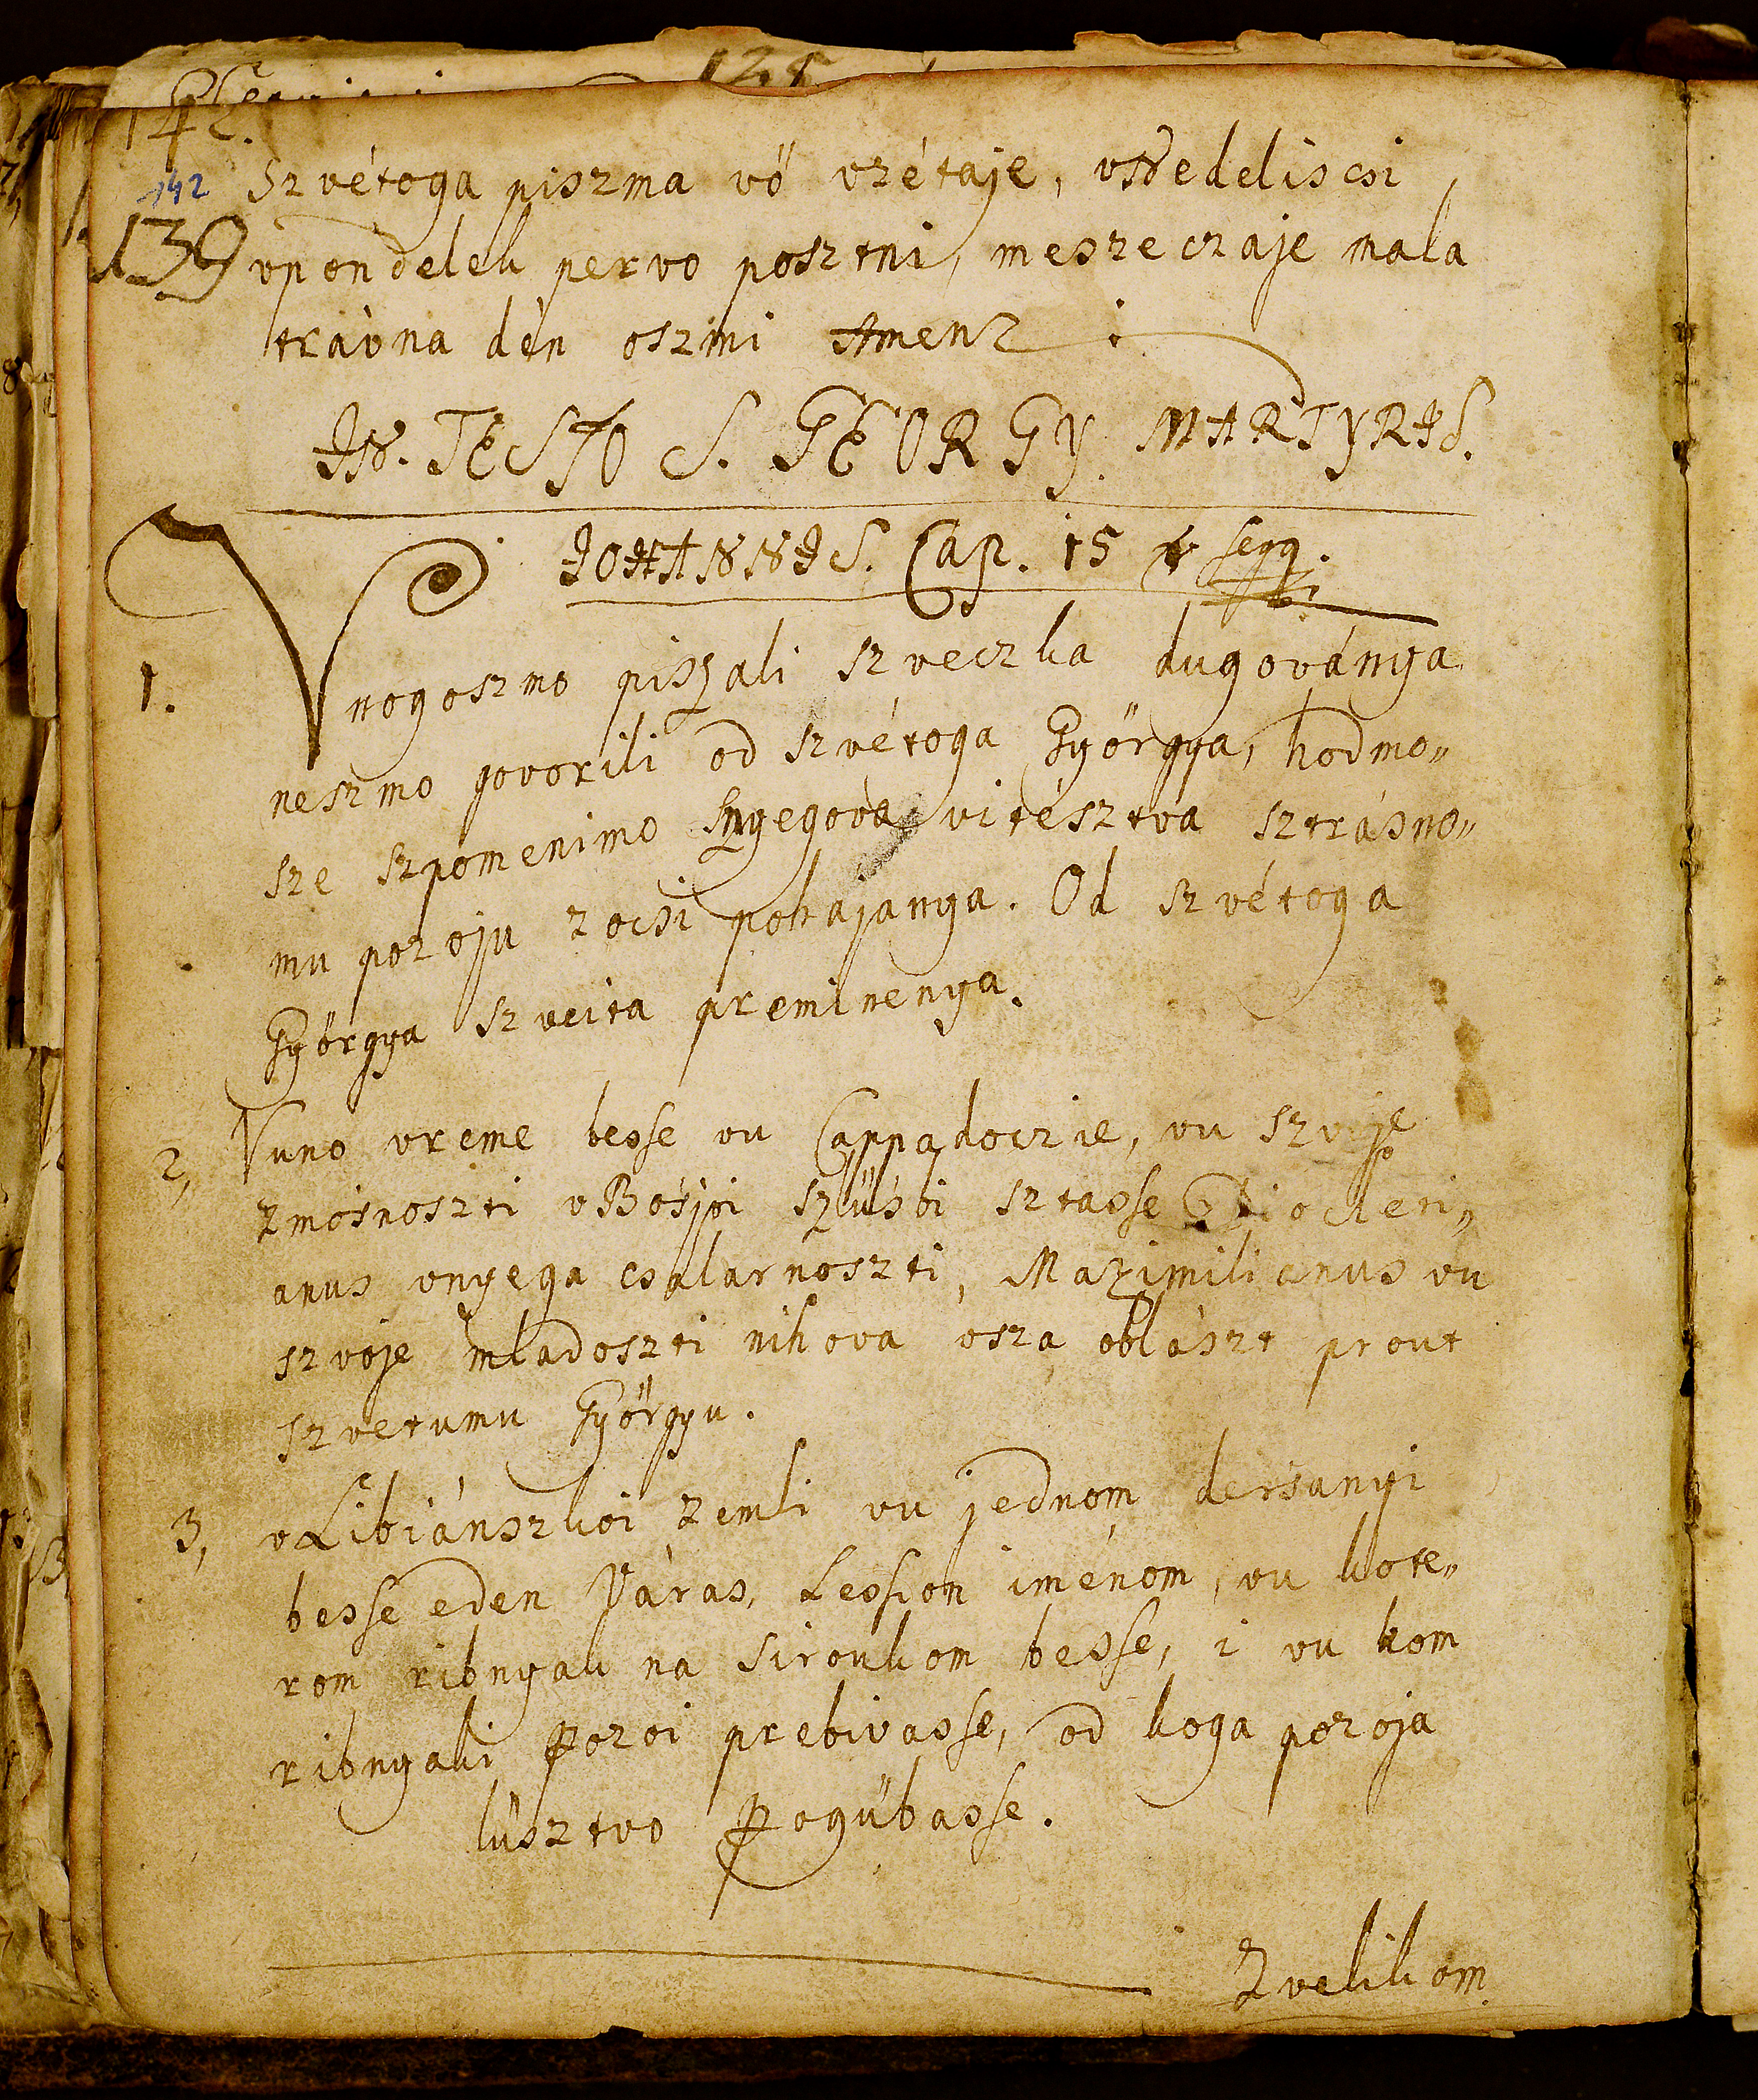 125
142.
142 Szvétoga piszma vö vzétaje, vNedeliscsi
139 vpondelek pervo posztni, meszeczaje mala
trávna dén oszmi Amen
IN. FESTO S. GEORGY. MARTYRIS.
JOHANNIS. Cap. 15 & seqq.
1. Vnogoszmo piszali szveczka dugoványa
neszmo govorili od szvétoga Györgya, hodmo„
sze szpomenimo Znyegova vitésztva sztrásno„
mu pozoju zocsi pokajanya. Od szvétoga
Györgya szveita preminenya.
2, Vuno vreme besse vu Cappadoczie, vu szvoje
zmósnoszti vBósjoi szlúsbi sztasse Diocleti„
anus vnyega csalarnoszti, Maximilianus vu
szvoje mladoszti nihova vsza oblászt prout
szvetumu Györgyu.
3, vLibiánszkoi zemli vu jednom dersanyi
besse eden Város, Lession iménom, vu kote„
rom ribnyak na siroukom besse, i vu kom
ribnyaki Pozoi prebivasse, od koga pozoja
lüsztvo Pogübasse.
Zvelikom